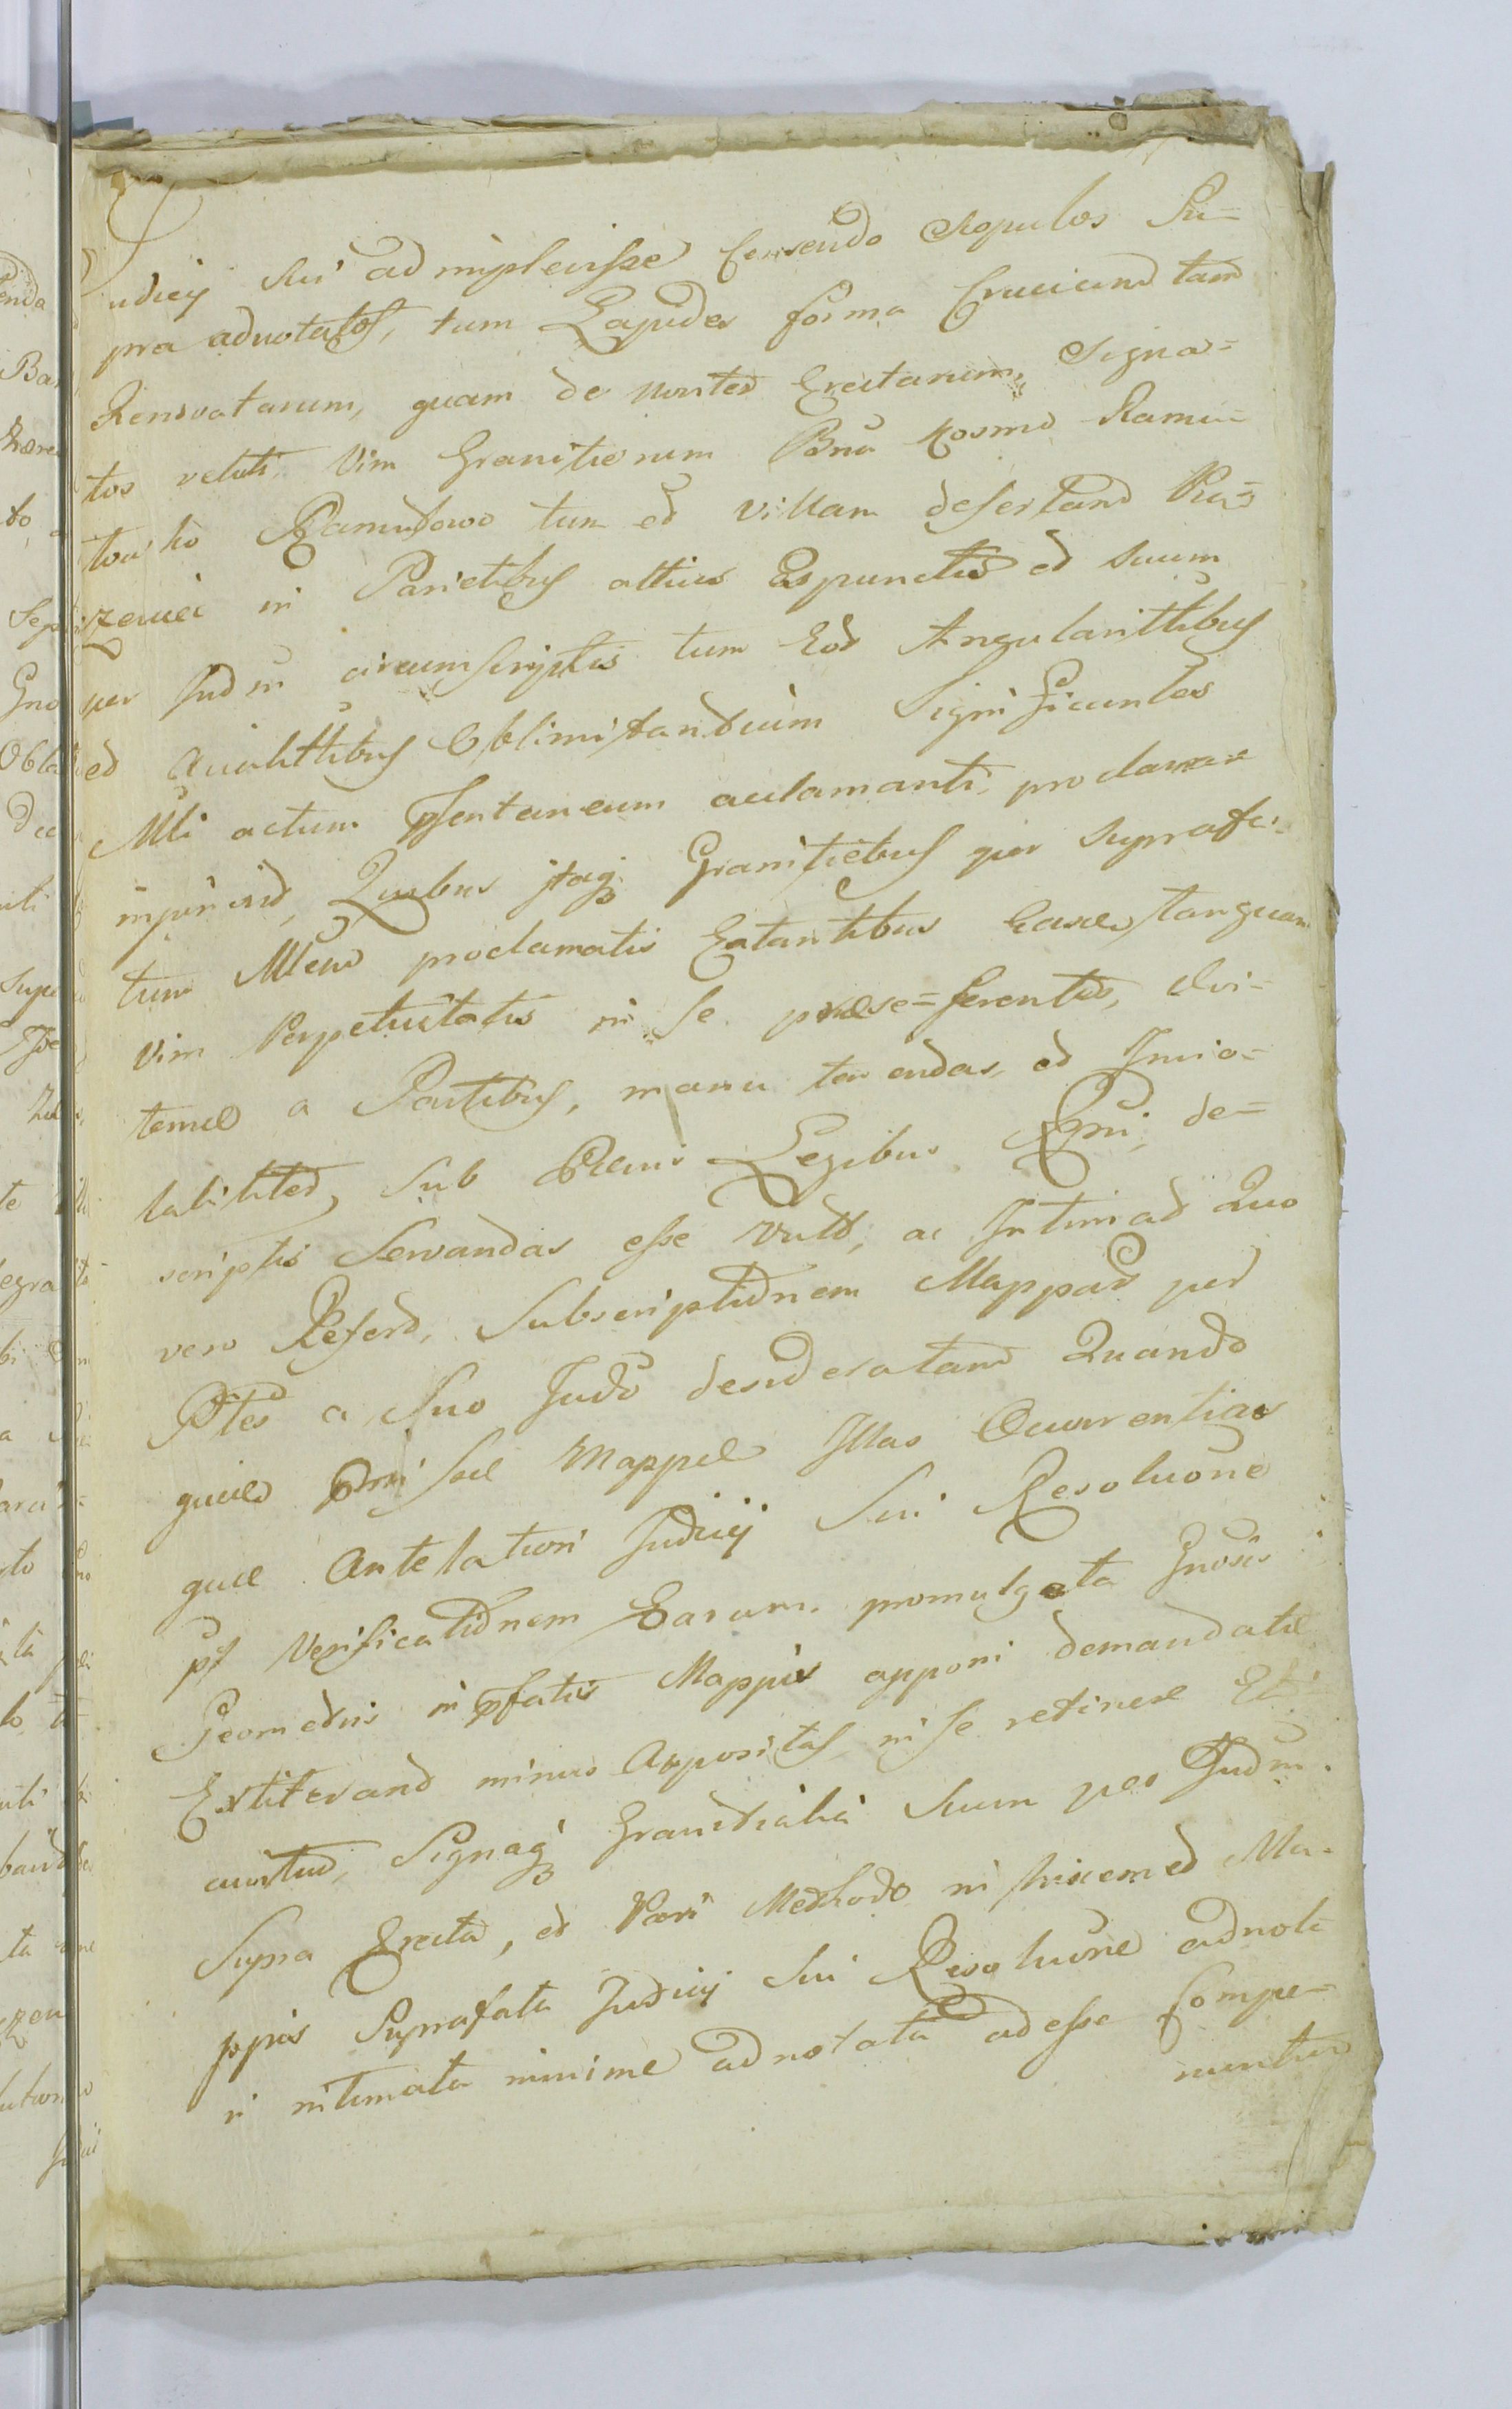 udicij sui adimplevisse Censendo Scopulos Su=
pra adnotatos, tum Lapides forma Crucium tam
Renovatarum, quam de noviter Erectarum, Signa=
tos veluti Vim Granitierum Bnu Kosmo Ramu=
towko Ramutowo tum et Villam desertam Ru=
zewei in Parietibus altius Expunctis et suum
per Judm circumscriptis tum Eod Angularittibus
et Aciалittibus Oblimitantium Significantes
Mti actum pſentaneum acclamanti proclama=
Quibus itaq Granitiebus per Suprafa=
tum Mtem proclamatis Extantibus Easdem tanquam
vim Perpetuitatis in se præse=ferentes, Evi=
terne a Partibus, manu tenendas, et Invio=
labiliter, sub Pænis Legibus Rgni de=
scriptis Servandas esse vult, ac Intimat Quo
vero Refert, Subscriptionem Mappar per
Ptes a Suo Judo desideratam Quando
quidem Mappæ Illas Occurrentias
quæ Antelatiori Judicij Sui Resoluone
pſ Verificationem Earum promulgata Gnosis
Geometris in pſatis Mappis apponi demandatæ
Extiterant minus Appositas in se retinere
Signaq Granitialia Suum per Judm
Supra Erecta, et Pari Methodo in hiscemet Ma=
ppis Suprafata Judicij Sui Resoluone adnota
ri intimata minime adnotata adesse Compe=
riuntur